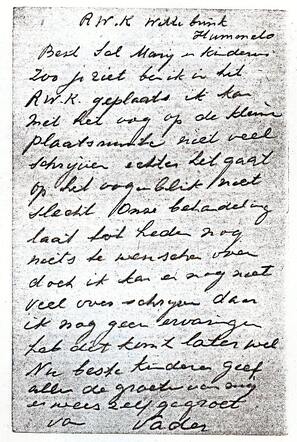 R.W.K Wittebrink
Hummelo
Best Sal Marij en kinderen
Zoo je ziet ben ik in het
R.W.K. geplaats ik kan
met het oog op de kleine
plaatsruimte niet veel
schrijven echter het gaat
op het oogenblik niet
slecht Onze behandeling
laat tot heden nog
niets te wenschen over
doch ik kan er nog niet
veel over schrijven daar
ik nog geen ervaringen
heb dit komt later wel
Nu beste kinderen geef
allen de groeten van mij
en wees zelf gegroet
van Vader